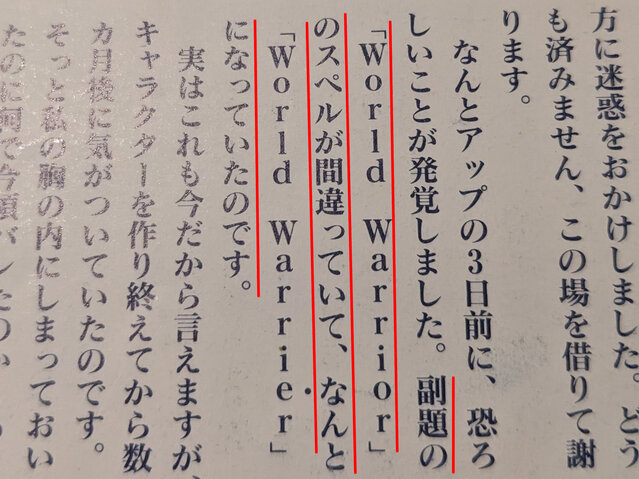 方に迷惑をおかけしました。どう
も済みません、この場を借りて謝
ります。
なんとアップの3日前に、恐ろ
しいことが発覚しました。副題の
「World Warrior」
のスペルが間違っていて、なんと
「World Warrier」
になっていたのです。
実はこれも今だから言えますが、
キャラクターを作り終えてから数
カ月後に気がついていたのです。
そっと私の胸の内にしまっておい
たのに何で今頃バレたのか